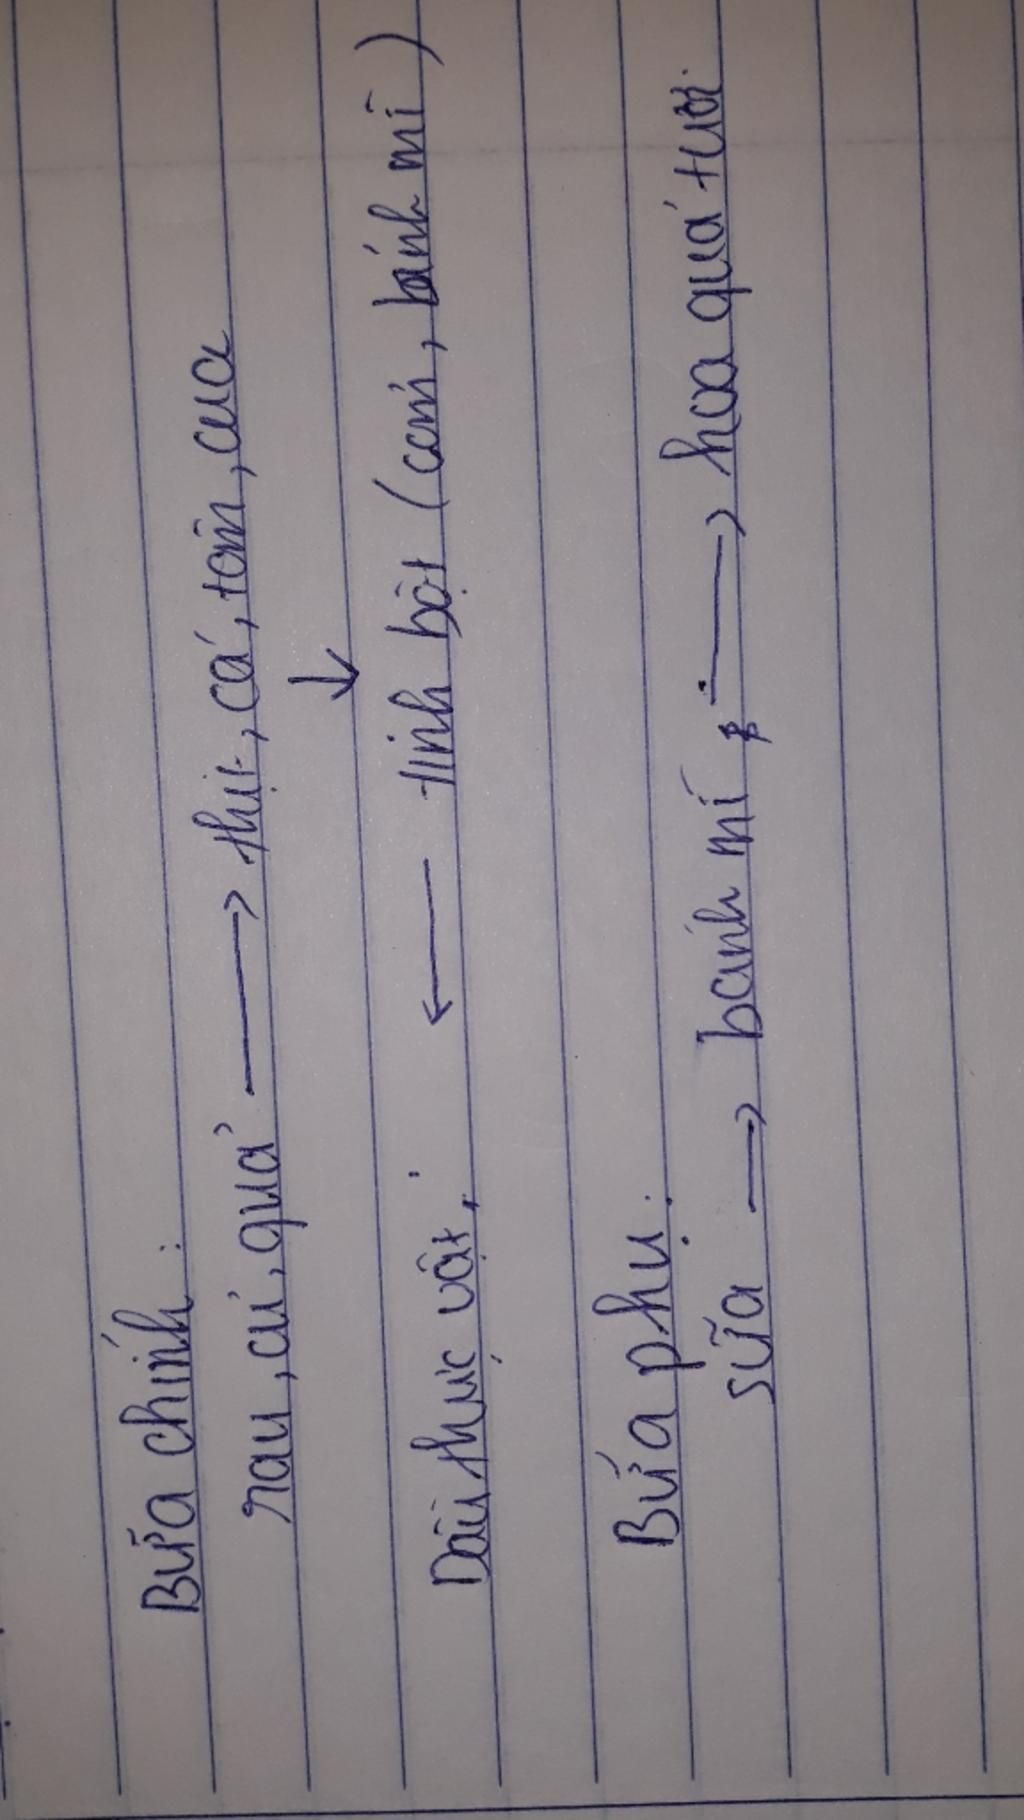 Bữa chính:
rau, củ, quả → thịt, cá, tôm, cua
↓
Dầu thực vật, ← tinh bột (cơm, bánh mì)
Bữa phụ:
sữa → bánh mì → hoa quả tươi.